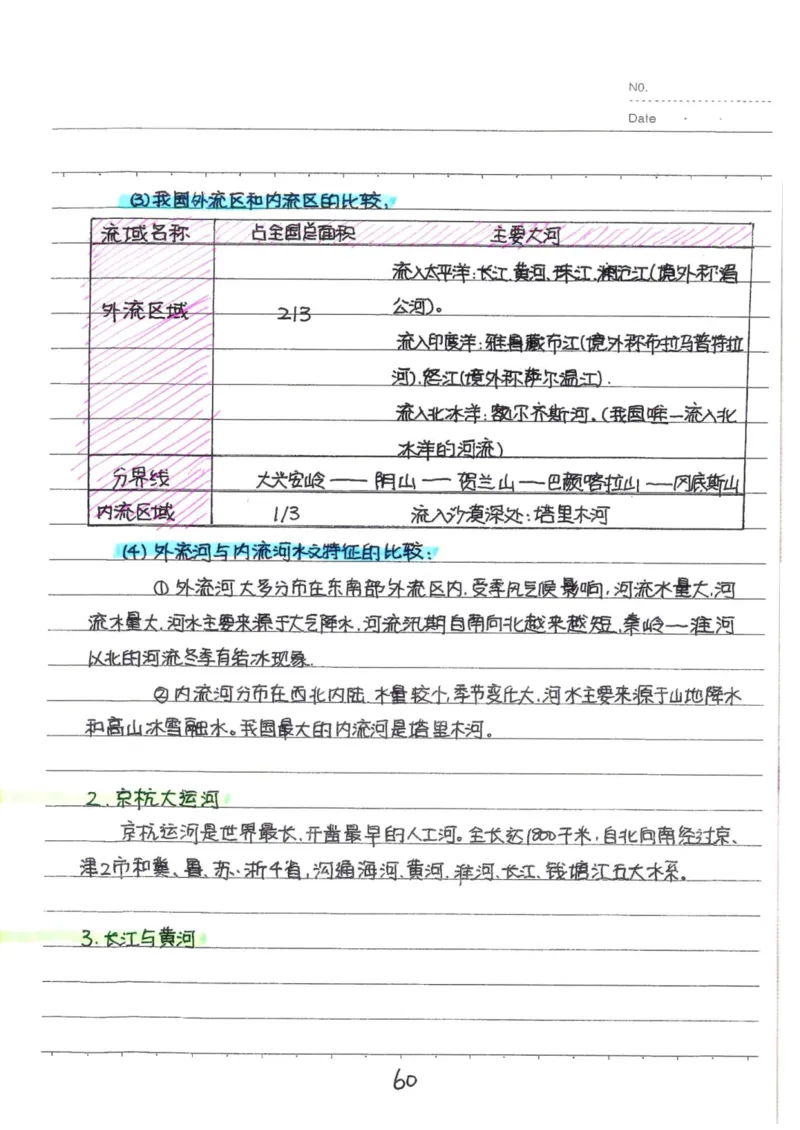 NO.
Date
(3)我国外流区和内流区的比较:
流域名称 占全国总面积 主要大河
流入太平洋:长江、黄河、珠江、澜沧江(境外称湄
外流区域 2/3 公河)。
流入印度洋:雅鲁藏布江(境外称布拉马普特拉
河)、怒江(境外称萨尔温江).
流入北冰洋:额尔齐斯河。(我国唯一流入北
冰洋的河流)
分界线 大兴安岭——阴山——贺兰山—巴颜喀拉山—冈底斯山
内流区域 1/3 流入沙漠深处:塔里木河
(4)外流河与内流河水文特征的比较:
①外流河大多分布在东南部外流区内,受季风气候影响,河流水量大,河
流水量大,河水主要来源于大气降水,河流汛期自南向北越来越短,秦岭—淮河
以北的河流冬季有结冰现象.
②内流河分布在西北内陆,水量较小,季节变化大,河水主要来源于山地降水
和高山冰雪融水。我国最大的内流河是塔里木河。
2.京杭大运河
京杭运河是世界最长、开凿最早的人工河。全长达1800千米,自北向南经过京、
津2市和冀、鲁、苏、浙4省,沟通海河、黄河、淮河、长江、钱塘江五大水系。
3.长江与黄河
60